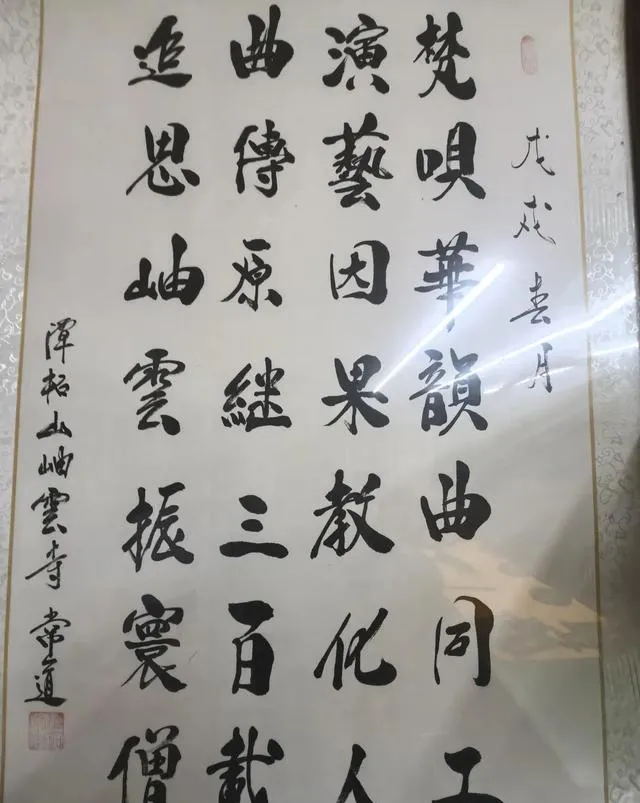 戊戌春月
梵唄華韻曲同工
演藝因果教化人
曲傳原继三百載
追思岫雲振寰僧
潭柘山岫雲寺常道